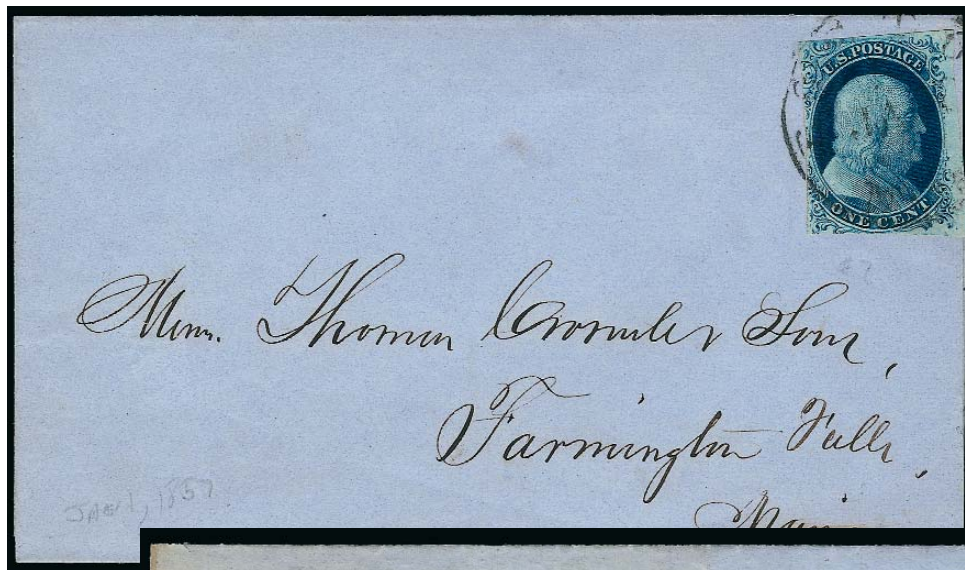 U.S. POSTAGE
ONE CENT
Messrs. Thomas Croswell & Sons,
Farmington Falls,
Maine
JAN 1, 1857